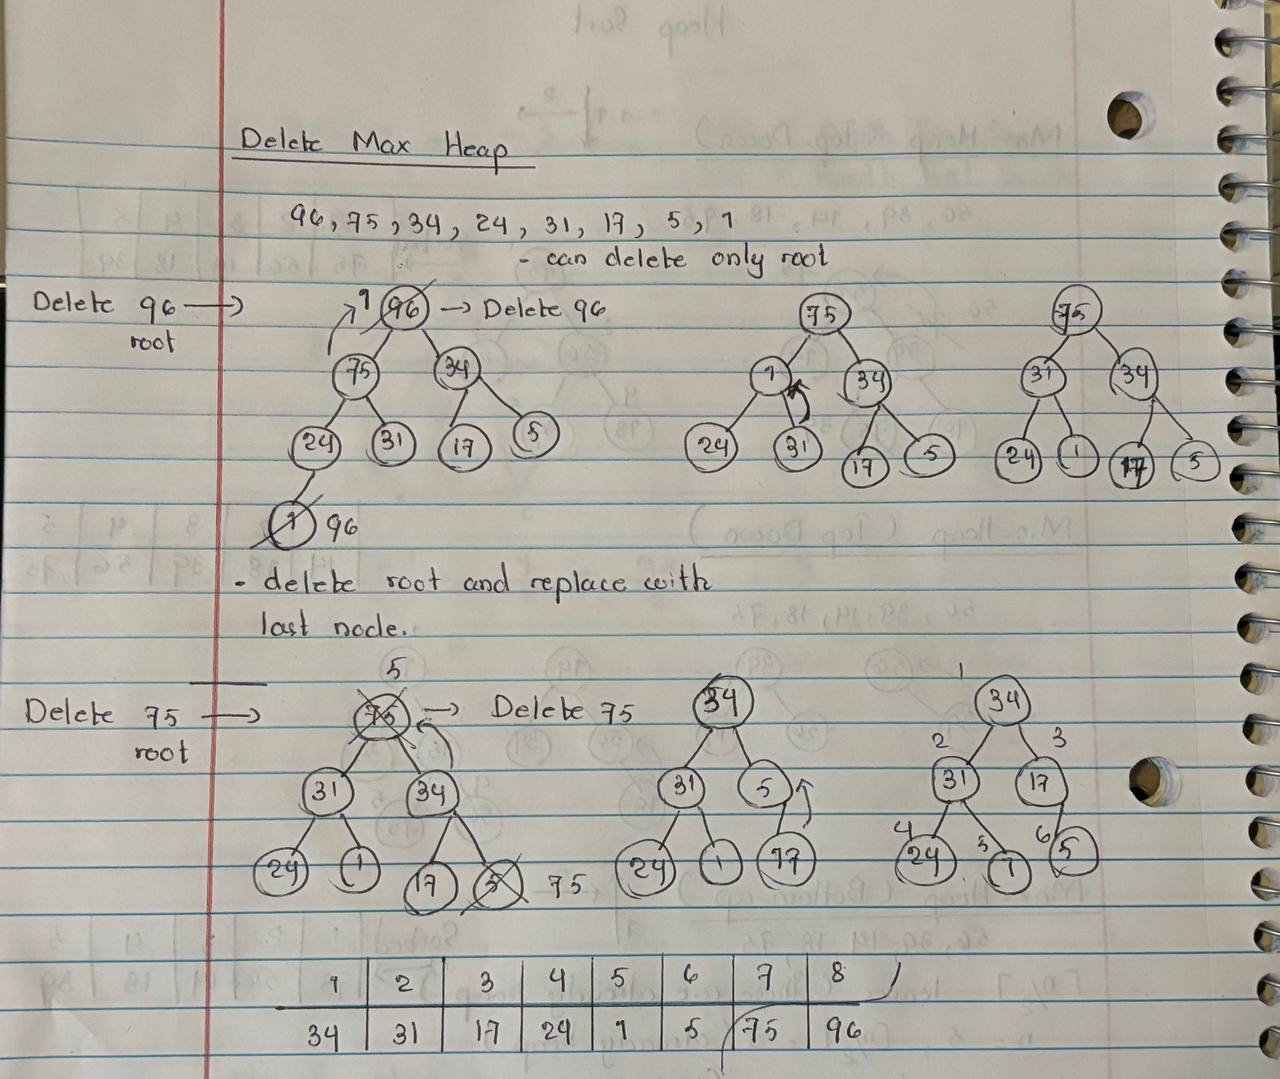 Delete Max Heap
96, 75, 34, 24, 31, 17, 5, 1
- can delete only root
Delete 96 → root
1 96 → Delete 96
75 34
24 31 17 5
1 96
75
1 34
24 31 17 5
75
31 34
24 1 17 5
- delete root and replace with
last node.
Delete 75 → root
5
75 → Delete 75
31 34
24 1 17 5 75
34
31 5
24 1 17
1
34
2 3
31 17
4 5 6
24 1 5
1 2 3 4 5 6 7 8
34 31 17 24 1 5 75 96